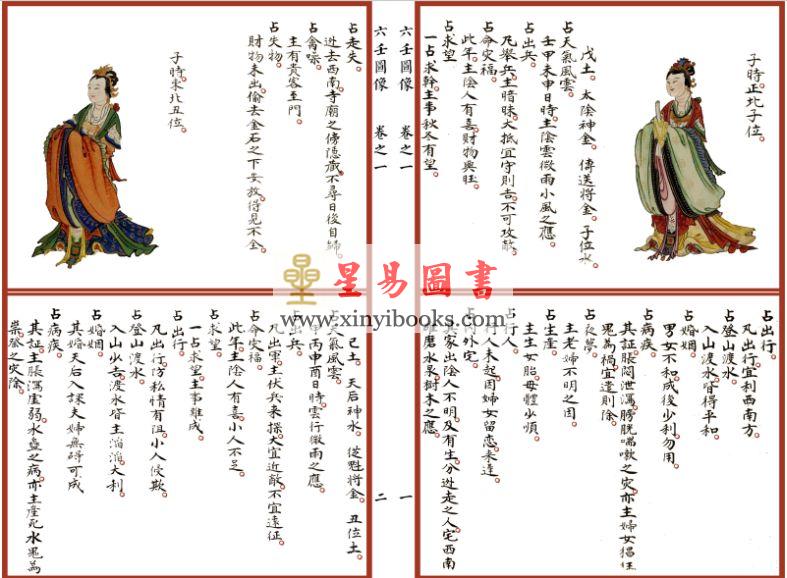 子時正北子位。
戊土。太陰神金。傳送將金。子位水。
占天氣風雲。
壬甲未申日時主陰雲微雨小風之應。
占出兵。
凡舉兵主暗昧大抵宜守則吉不可攻敵。
占命災福。
此年主陰人有喜財物興旺。
占求望
一占求幹主事秋冬有望。
占出行。
凡出行宜利西南方
占登山渡水。
入山渡水皆得平和。
占婚姻。
男女不和成後少利勿用。
占病疾。
其証脹悶泄瀉膀胱喘嗽之灾亦主婦女猖狂
鬼為禍宜遣則除。
占夜夢。
主老婦不明之因
占生產。
主生女胎母體少順。
占行人。
行人未起因婦女留戀未達。
占內外宅。
其家出陰人不明及有生分逃走之人宅西南
碓磨水泉樹木之應。
六壬圖像 卷之一 一
六壬圖像 卷之一 二
占走失。
逃去西南寺廟之傍隱藏不尋日後自歸。
占禽噪。
主有貴客至門。
占失物。
財物未出偷去金石之下安放得見不全。
子時東北丑位。
己土。天后神水。從魁將金。丑位土。
占天氣風雲。
甲丙申酉日時雲行微雨之應。
占出兵。
凡出軍主伏兵來探大宜近敵不宜遠征。
占命災福。
此年主陰人有喜小人不足。
占求望。
一占求望主事難成。
占出行。
凡出行防私情有阻小人侵欺。
占登山渡水。
入山少吉渡水皆主大利。
占婚姻。
其婚天后入課夫婦無碍可成
占病疾。
其証主脹瀉虛弱。水蠱之病亦主產死水鬼為
祟登之灾除。
星易圖書
www.xinyibooks.com